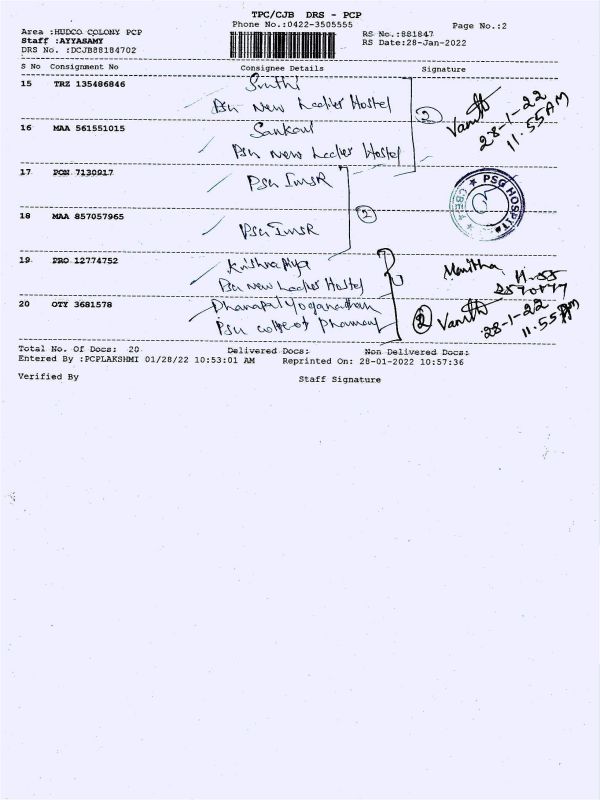 TPC/CJB DRS - PCP
Phone No.:0422-3505555
Page No.:2
Area :HUDCO COLONY PCP
RS No.:881847
Staff :AYYASAMY
RS Date:28-Jan-2022
DRS No. :DCJB88184702
S No Consignment No Consignee Details Signature
15 TRZ 135486846 Sruthi
Psu New Ladies Hostel
2 Vanith
28-1-22
11.55AM
16 MAA 561551015 Sankari
Psu New Ladies Hostel
17 PON 7130917 Psu ImsR
2
PSG HOSPITA
CBE-4
18 MAA 857057965 Psu ImsR
19 PRO 12774752 Krishnapriya
Psu New Ladies Hostel
20 OTY 3681578 Dhanapal Yoganathan
Psu college of Pharmacy
2 Vanith
28-1-22
11.55
Total No. Of Docs: 20 Delivered Docs: Non Delivered Docs:
Entered By :PCPLAKSHMI 01/28/22 10:53:01 AM Reprinted On: 28-01-2022 10:57:36
Verified By Staff Signature